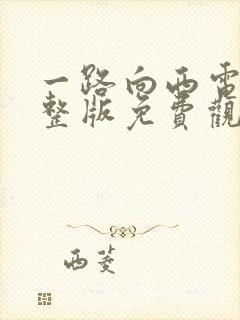 一路向西電
整版免費觀
西菱